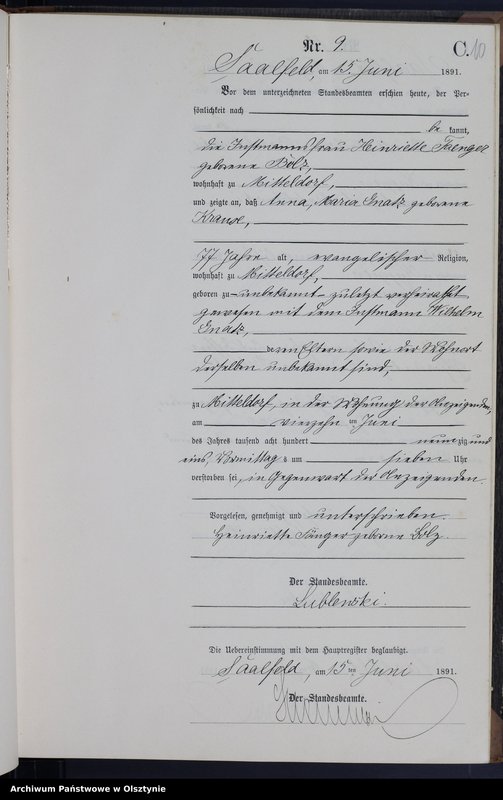 Nr. 9.
C. 10
Saalfeld, am 15. Juni 1891.
Vor dem unterzeichneten Standesbeamten erschien heute, der Per-
sönlichkeit nach
be kannt,
die Instmannsfrau Henriette Faenger
geborene Bolz,
wohnhaft zu Mitteldorf,
und zeigte an, daß Anna, Maria Gnatz geborene
Krause,
77 Jahre alt, evangelischer Religion,
wohnhaft zu Mitteldorf,
geboren zu unbekannt zuletzt verheirathet
gewesen mit dem Instmann Wilhelm
Gnatz,
deren Eltern sowie der Wohnort
derselben unbekannt sind,
zu Mitteldorf, in der Wohnung der Anzeigenden,
am vierzehn ten Juni
des Jahres tausend acht hundert neun zig und
eins, Vormittag s um sieben Uhr
verstorben sei, in Gegenwart der Anzeigenden.
Vorgelesen, genehmigt und unterschrieben.
Heinriette Fänger geborne Bolz.
Der Standesbeamte.
Lublenski.
Die Uebereinstimmung mit dem Hauptregister beglaubigt.
Saalfeld, am 15 ten Juni 1891.
Der Standesbeamte.
Archiwum Państwowe w Olsztynie